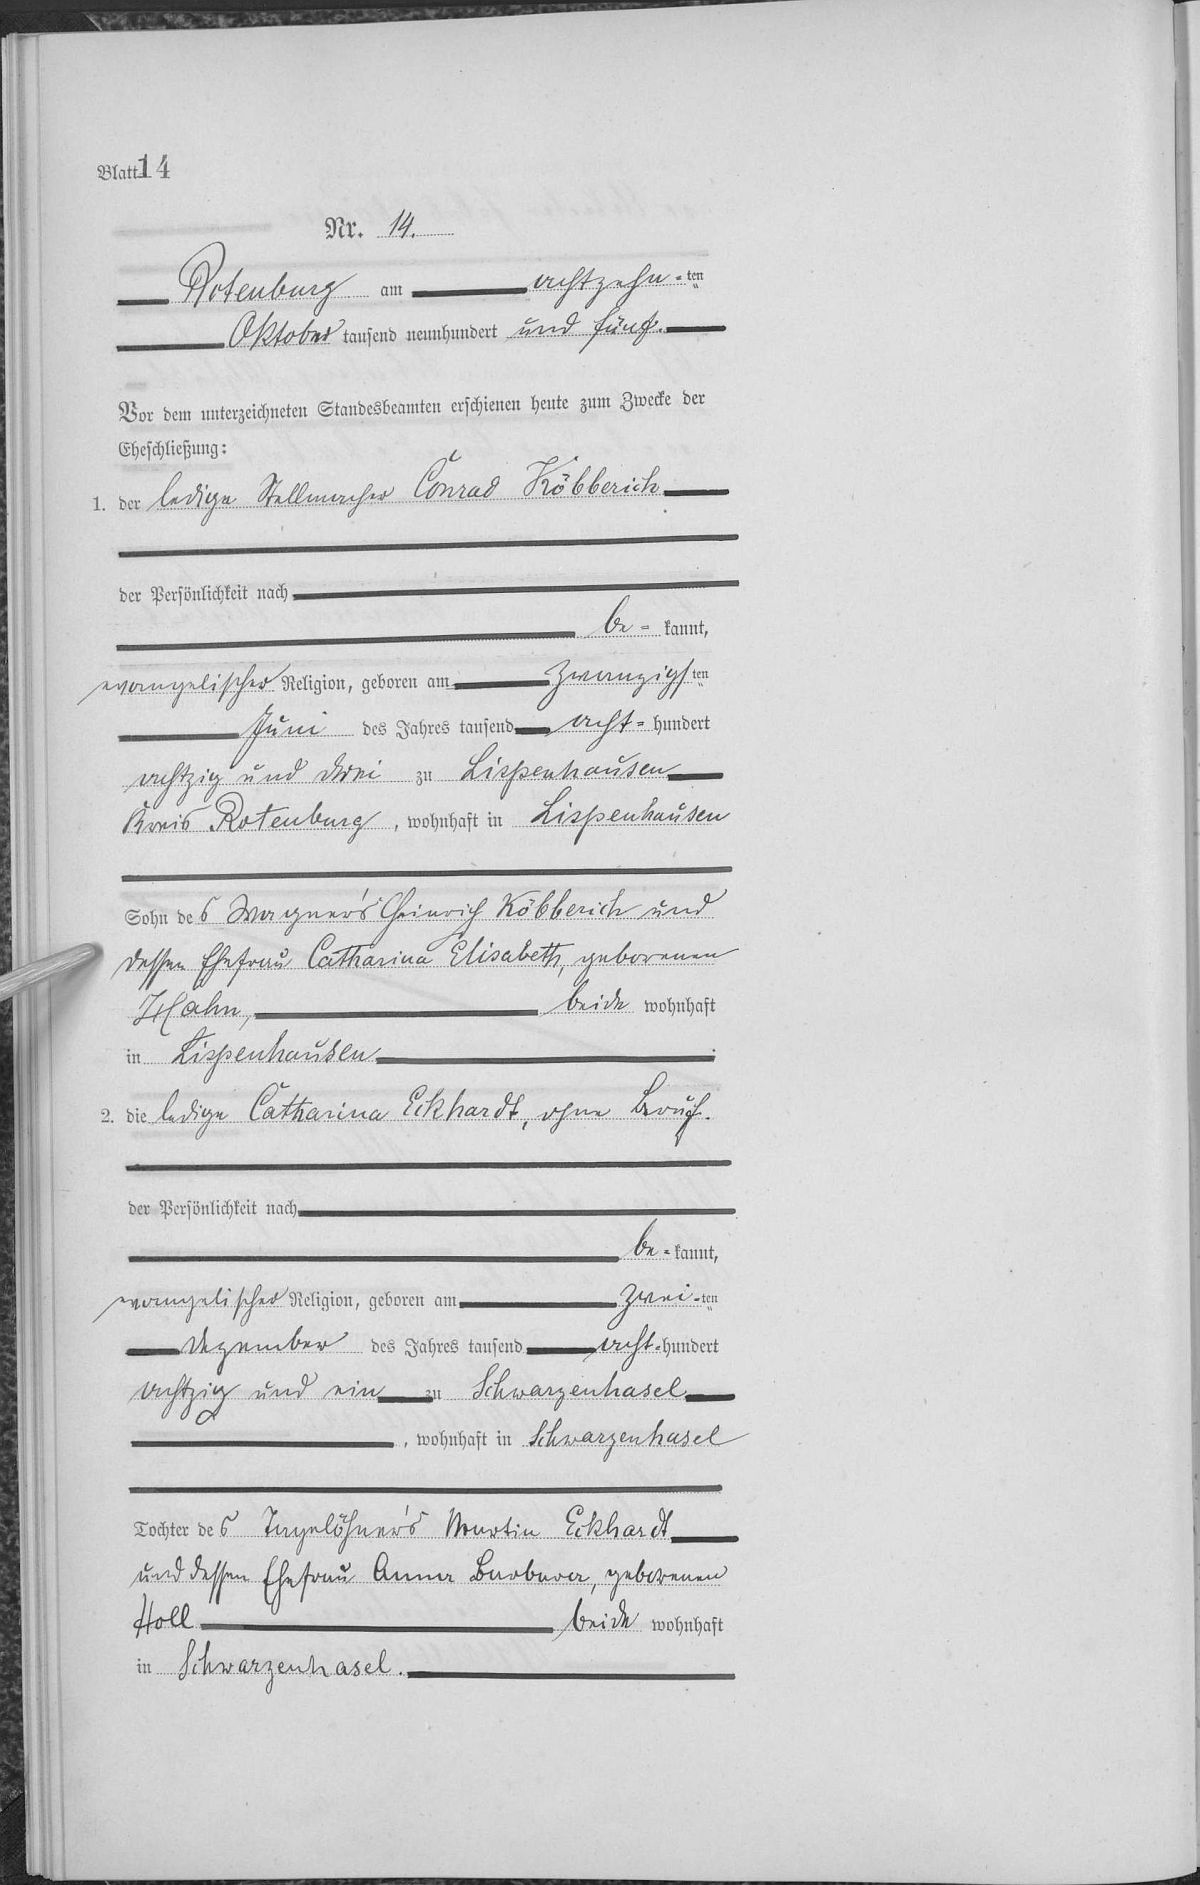 Blatt 14
Nr. 14.
Rotenburg am achtzehn-ten
Oktober tausend neunhundert und fünf.
Vor dem unterzeichneten Standesbeamten erschienen heute zum Zwecke der
Eheschließung:
1. der ledige Stellmacher Conrad Köbberich
der Persönlichkeit nach
be- kannt,
evangelischer Religion, geboren am zwanzigsten
Juni des Jahres tausend acht- hundert
achtzig und drei zu Lispenhausen
Kreis Rotenburg, wohnhaft in Lispenhausen
Sohn des Wagner's Heinrich Köbberich und
dessen Ehefrau Catharina Elisabeth, geborenen
Hahn, beide wohnhaft
in Lispenhausen
2. die ledige Catharina Eckhardt, ohne Beruf.
der Persönlichkeit nach
be- kannt,
evangelischer Religion, geboren am zwei-ten
Dezember des Jahres tausend acht-hundert
achtzig und ein zu Schwarzenhasel
, wohnhaft in Schwarzenhasel
Tochter des Tagelöhner's Martin Eckhardt
und dessen Ehefrau Anna Barbara, geborenen
Holl beide wohnhaft
in Schwarzenhasel.